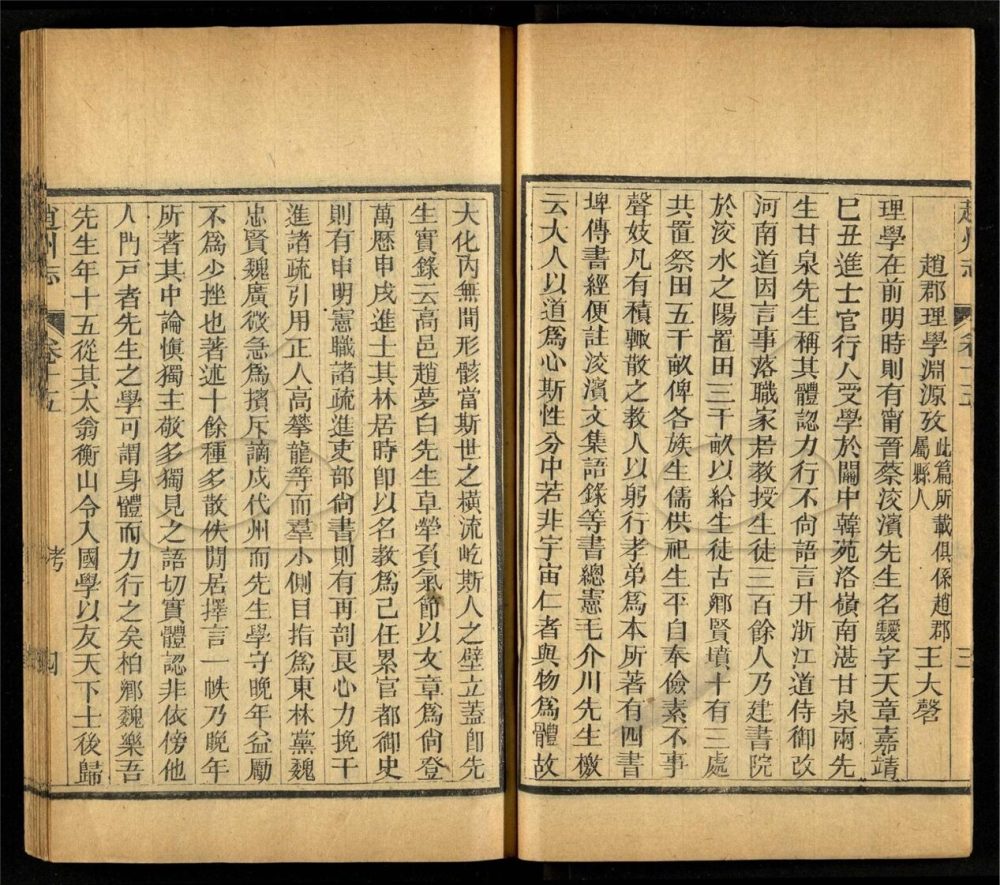 趙州志
卷十五
三
趙郡理學淵源攷 此篇所載俱係趙郡屬縣人 王大磬
理學在前明時則有甯晉蔡洨濱先生名靉字天章嘉靖
巳丑進士官行人受學於關中韓苑洛嶺南湛甘泉兩先
生甘泉先生稱其體認力行不尙語言升浙江道侍御改
河南道因言事落職家居教授生徒三百餘人乃建書院
於洨水之陽置田三千畝以給生徒古鄉賢墳十有三處
共置祭田五千畝俾各族生儒供祀生平自奉儉素不事
聲妓凡有積輙散之教人以躬行孝弟爲本所著有四書
埤傳書經便註洨濱文集語錄等書總憲毛介川先生檄
云大人以道爲心斯性分中若非宇宙仁者與物爲體故
大化內無間形骸當斯世之橫流屹斯人之壁立蓋卽先
生實錄云高邑趙夢白先生卓犖負氣節以文章爲尙登
萬歷申戌進士其林居時卽以名教爲己任累官都御史
則有申明憲職諸疏進吏部尙書則有再剖艮心力挽干
進諸疏引用正人高攀龍等而羣小側目指爲東林黨魏
忠賢魏廣微急爲擯斥謫戍代州而先生學守晚年益勵
不爲少挫也著述十餘種多散佚閒居擇言一帙乃晚年
所著其中論愼獨主敬多獨見之語切實體認非依傍他
人門戸者先生之學可謂身體而力行之矣柏鄉魏樂吾
先生年十五從其太翁衡山令入國學以友天下士後歸
趙州志
卷十五
考
四